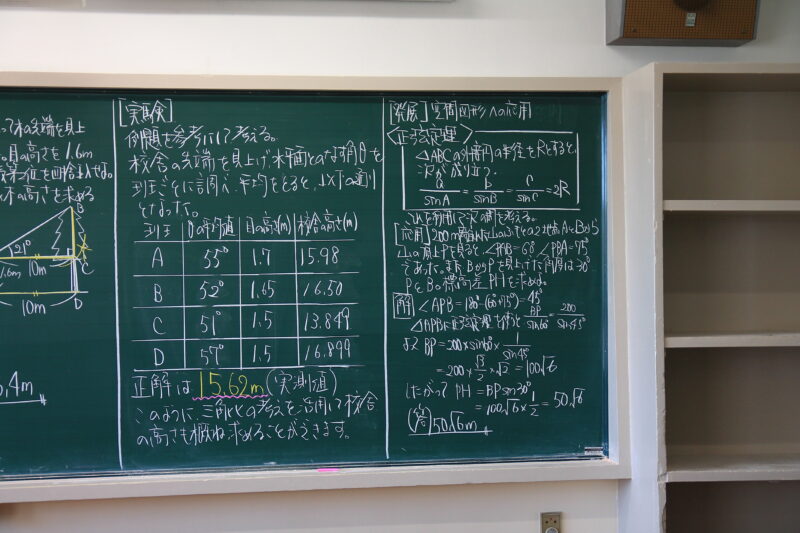 って木の先端を見上
の目の高さを1.6m
の木の高さを求める
B
21°
1.6m
10m
C
D
10m
.4m
[実験]
例題を参考にして考える。
校舎の先端を見上げ水平面とのなす角日を
班ごとに調べ、平均をとると、以下の通り
となった。
班 θの平均値 目の高さ(m) 校舎の高さ(m)
A 55° 1.7 15.98
B 52° 1.65 16.50
C 51° 1.5 13.849
D 57° 1.5 16.899
正解は 15.62m (実測値)
このように、三角比の考えを活用して校舎
の高さも概ね求めることができます。
[発展] 空間図形への応用
<正弦定理>
△ABCの外接円の半径をRとすると、
次が成り立つ
a/sinA = b/sinB = c/sinC = 2R
これを利用して次の問を考える。
[応用] 200m離れた山のふもとの2地点AとBから
山の頂上Pを見ると、∠PAB=60° ∠PBA=75°
であった。またBからPを見上げた角度は30°
PとBの標高差PHを求めよ。
[解] ∠APB=180°-(60°+75°)=45°
△APBに正弦定理を使うと BP/sin60° = 200/sin45°
よって BP=200×sin60°×1/sin45°
=200×√3/2×√2=100√6
したがって PH=BPsin30°
=100√6×1/2=50√6
(答) 50√6m